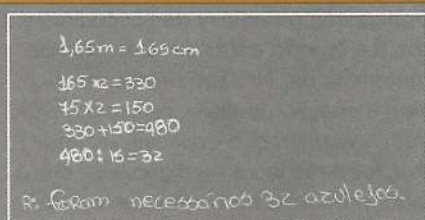 1,65m = 165cm
165 x2 = 330
75 x 2 = 150
330 + 150 = 480
480 : 15 = 32
R: foram necessários 32 azulejos.